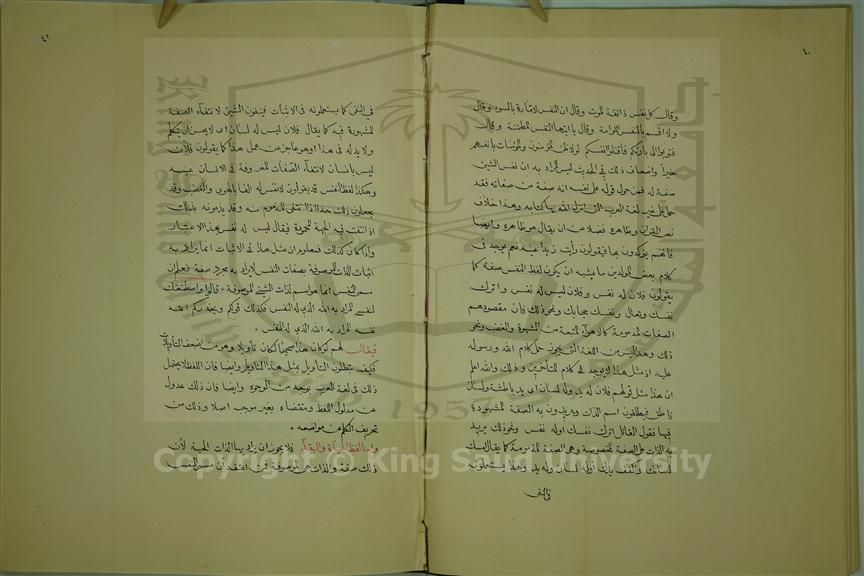 ٤٠
وقال كل نفس ذائقة الموت وقال ان النفس لامارة بالسوء وقال
ولا اقسم بالنفس اللوامة وقال يا ايتها النفس المطمئنة وقال
فتوبوا الى بارئكم فاقتلوا انفسكم لولا ظن المؤمنون والمؤمنات بانفسهم
خيرا واضعاف ذلك في الحديث ليس المراد به ان نفس الشيئ
صفة له فمن حمل قوله على نفسه انه صفة من صفاته فقد
حمل على غير لغة العرب التي انزل الله بها كتابه وهذا خلاف
نص القرآن وظاهره فضلا عن ان يقال هو ظاهره وايضا
فانهم يؤكدون بها فيقولون رأيت زيدا عينه نعم يوجد في
كلام بعض المولدين ما يشبه ان يكون لفظ النفس صفة كما
يقولون فلان له نفس وفلان ليس له نفس واترك
نفسك وتعال ونفسك حجابك ونحو ذلك فان مقصودهم
الصفات المذمومة كالاهواء المتبعة من الشهوة والغضب ونحو
ذلك وهذا ليس من اللغة التي يجوز حمل كلام الله ورسوله
عليه اذ مثل هذا لا يوجد الا في كلام المتأخرين وذلك والله اعلم
ان هذا مثل قولهم فلان له يد وله لسان اي يد باطشة ولسان
ناطق فيطلقون اسم الذات ويريدون به الصفة المشهورة
فيها فقول القائل اترك نفسك اوله نفس ونحو ذلك يريد
به الذات على الصفة المخصوصة وهي الصفة المذمومة كما يقال امسك
لسانك والفف يدك اوله لسان وله يد وهذا يستعملونه
في النفي
٤١
في النفي كما يستعملونه في الاثبات فينفون الشيئ لانتفاء الصفة
المشهورة فيه كما يقال فلان ليس له لسان اي لا يحسن ان يتكلم
ولا يد له في هذا اوهو عاجز عن عمل هذا كما يقولون فلان
ليس بانسان لانتفاء الصفات المعروفة في الانسان عنه
وهكذا لفظ النفس قد يقولون لانفس له الغالهوى والغضب وقد
يجعلون ذلك حمدا اذا انتفى المذموم منه وقد يذمونه بذلك
اذا انتفت فيه الجهة المحمودة فيقال ليس له نفس بهذا الاعتبار
واذا كان كذلك فمعلوم ان مثل هذا في الاثبات انما يراد به
اثبات الذات الموصوفة بصفات النفس لا يراد به مجرد صفة فعلم ان
مسمى النفس انما هو اسم لذات الشيئ الموصوفة . قالوا واصطنعتك
لنفسي المراد به الله الذي له النفس فكذلك قولكم ويحذركم الله
نفسه المراد به الله الذي له النفس .
فيقال لهم لو كان هذا صحيحا لكان تأويلا وهو من اضعف التأويلات
فكيف يبطلون التأويل بمثل هذا التأويل وايضا فان اللفظ لا يحتمل
ذلك في لغة العرب بوجه من الوجوه وايضا فان ذلك عدول
عن مدلول اللفظ ومقتضاه بغير موجب اصلا وذلك من
تحريف الكلم عن مواضعه .
واما لفظ الحياة والبقاء فلا يجوز ان يراد بها الذات الحية لأن
ذلك صفة والذات هي الموصوفة فمن اعتقد ان مسمى النفس
Copyright © King Saud University
1957